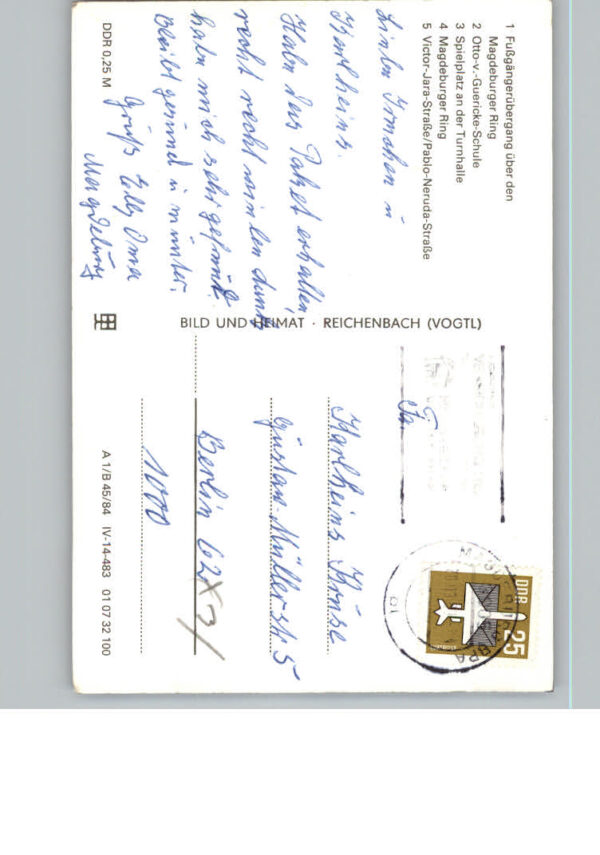 1 Fußgängerübergang über den
Magdeburger Ring
2 Otto-v.-Guericke-Schule
3 Spielplatz an der Turnhalle
4 Magdeburger Ring
5 Victor-Jara-Straße/Pablo-Neruda-Straße
Karlheinz.
Habe das Paket erhalten,
recht recht
habe mich sehr gefreut.
Bleibt gesund u munter.
Gruß Oma
Magdeburg
DDR 0,25 M
BILD UND HEIMAT · REICHENBACH (VOGTL)
Karlheinz
Gustav-Müllerstr 5
Berlin 62
1000
A 1/B 45/84 IV-14-483 01 07 32 100
DDR
25